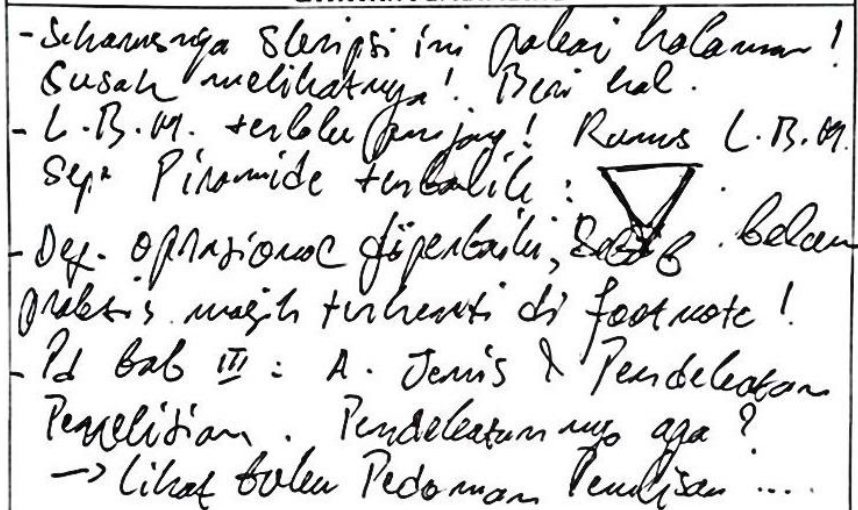 - Seharusnya Skripsi ini pakai halaman!
Susah melihatnya! Beri hal.
- L.B.M. terlalu panjang! Rumus L.B.M.
Sep. Piramide terbalik :
- Def. oprasional diperbaiki, Sebab belum
praktis masih terhenti di footnote!
- Pd bab III : A. Jenis & Pendekatan
Penelitian. Pendekatannya apa?
→ lihat buku Pedoman Penulisan ....